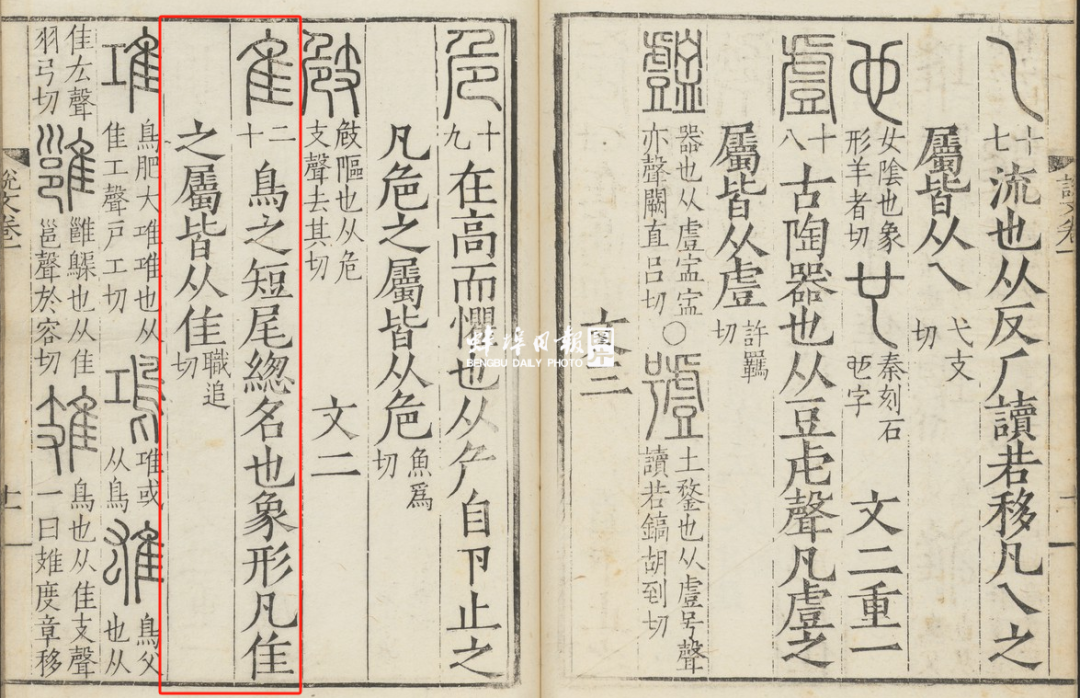 乁十七流也从反厂讀若移凡乁之
屬皆从乁弋支切
也女陰也象形羊者切 秦刻石也字 文二重一
䖒十八古陶器也从豆虍聲凡䖒之
屬皆从䖒許羈切
器也从䖒𥁕𥁕亦聲闕直吕切〇土鍪也从䖒号聲讀若鎬胡到切
文三
危十九在高而懼也从厃自卪止之
凡危之屬皆从危魚爲切 文二
䧢䧢䧢也从危支聲去其切
隹二十鳥之短尾緫名也象形凡隹
之屬皆从隹職追切
䧼鳥肥大䧼䧼也从隹工聲户工切 䧼或从鳥 雄鳥父也从
隹厷聲羽弓切 雝雝䳕也从隹邕聲於容切 䧴鳥也从隹支聲一曰䧴度章移
説文卷一
十一
蚌埠日報圖
BENGBU DAILY PHOTO